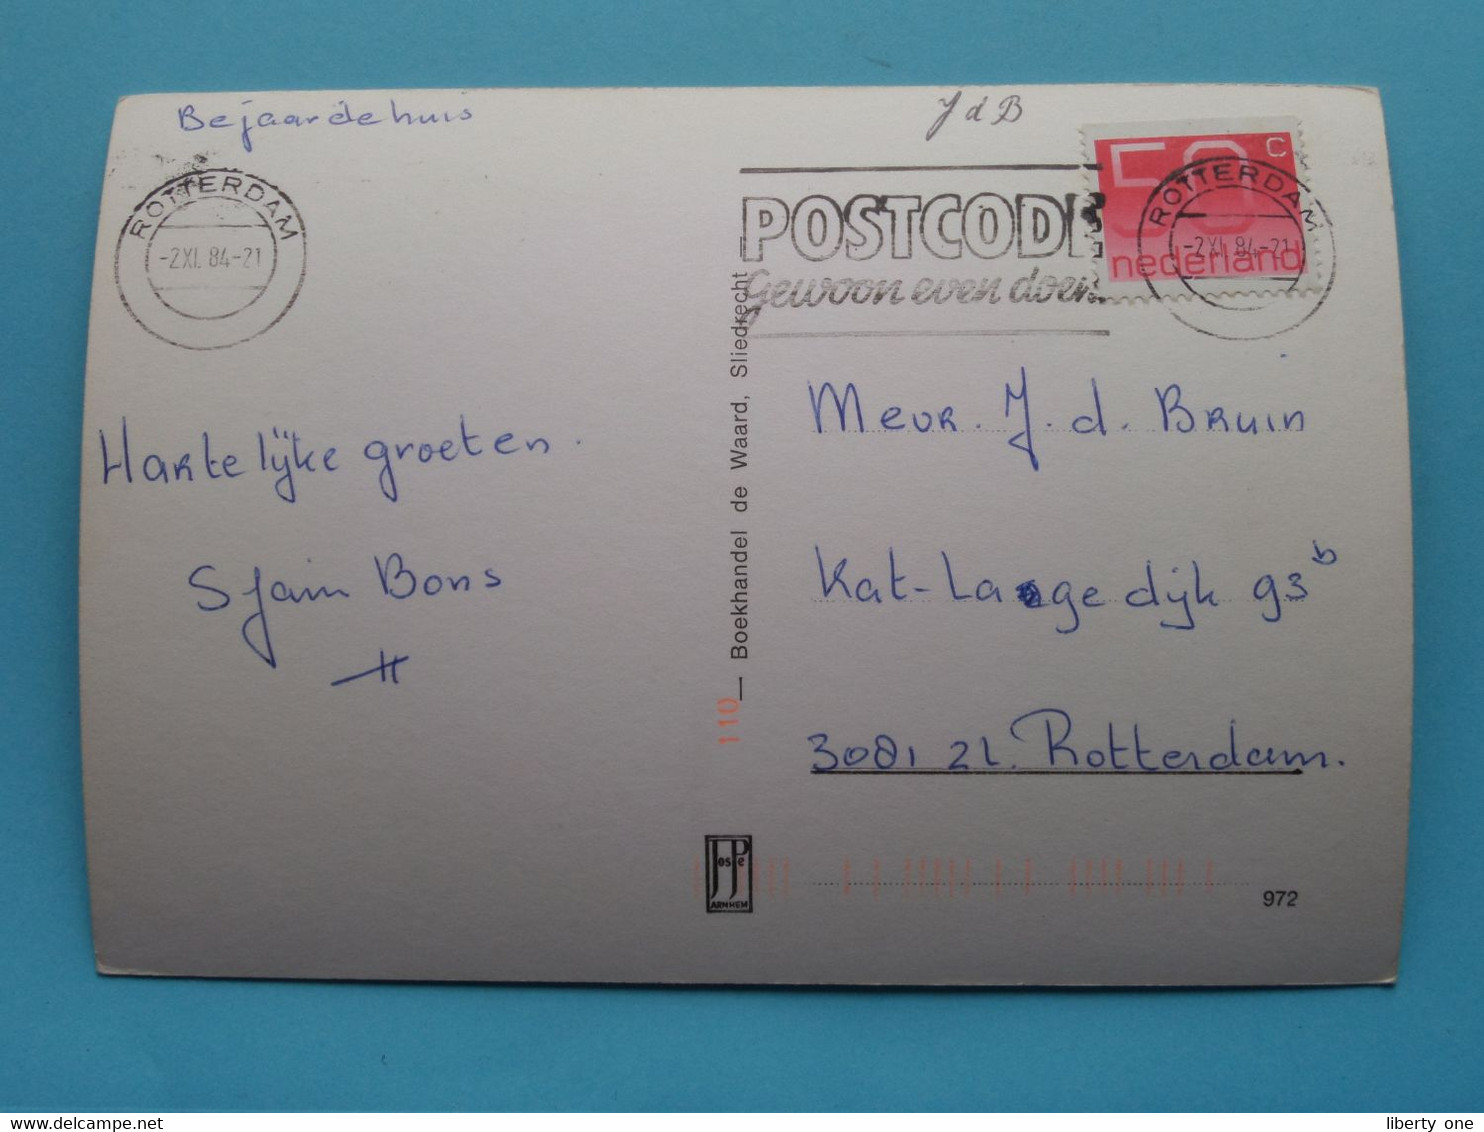 Bejaardehuis
J d B
ROTTERDAM
-2XI. 84-21
POSTCODE
Gewoon even doen
50 c
nederland
ROTTERDAM
-2XI. 84-21
Hartelijke groeten.
Sjain Bons
Boekhandel de Waard, Sliedrecht
110
Mevr. J. d. Bruin
Kat-Lagedijk 93b
3081 ZL. Rotterdam.
JosPe
ARNHEM
972
delcampe.net
liberty one